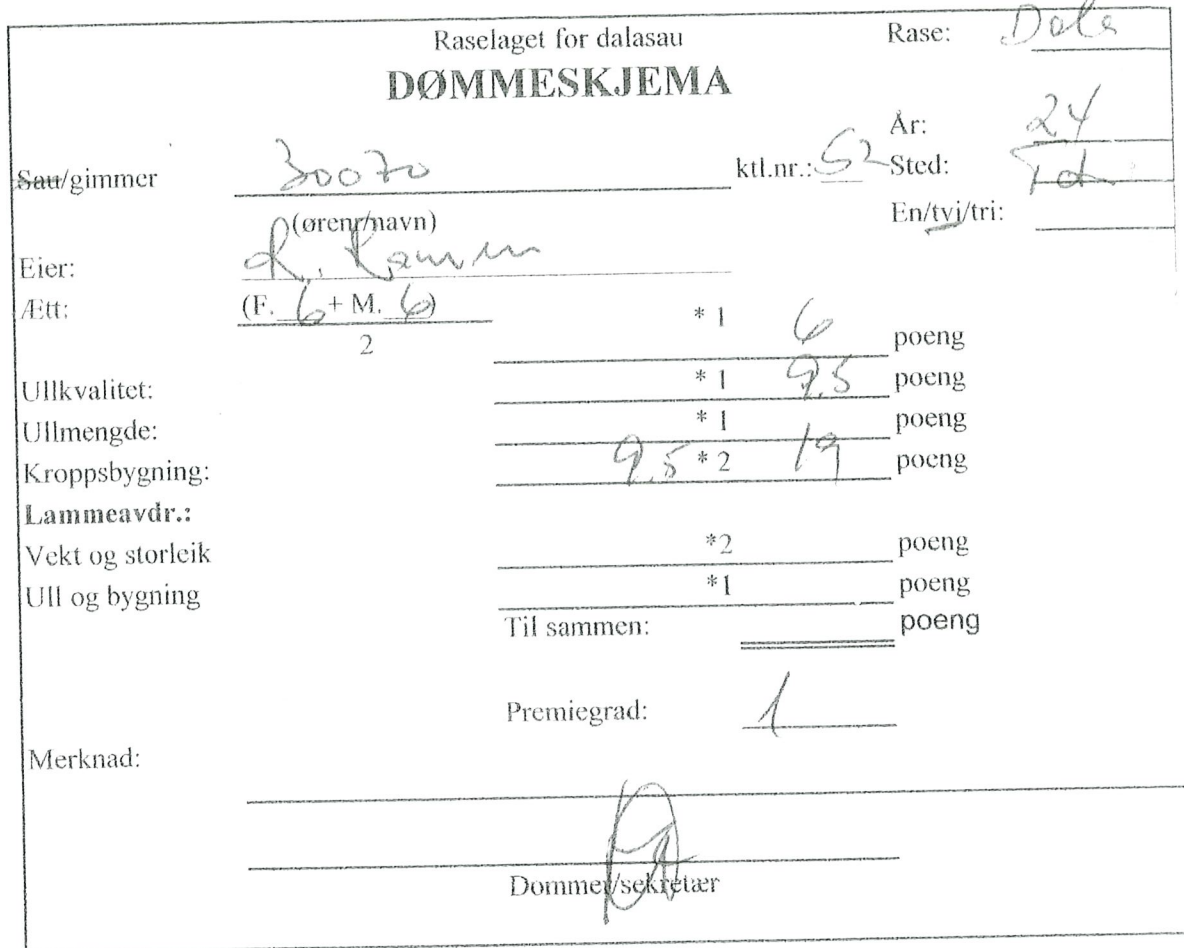 Raselaget for dalasau Rase: Dala
DØMMESKJEMA
År: 24
Sau/gimmer 30070 ktl.nr.: 52 Sted:
(ørenr/navn) En/tvi/tri:
Eier:
Ætt: (F. 6 + M. 6) * 1 6 poeng
2
Ullkvalitet: * 1 9,5 poeng
Ullmengde: * 1 poeng
Kroppsbygning: 9,5 * 2 19 poeng
Lammeavdr.:
Vekt og storleik *2 poeng
Ull og bygning *1 poeng
Til sammen: poeng
Premiegrad: 1
Merknad:
Dommer/sekretær